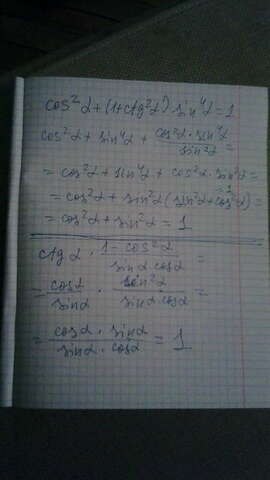 cos²α + (1+ctg²α) sin⁴α = 1
cos²α + sin⁴α + cos²α · sin⁴α / sin²α =
= cos²α + sin⁴α + cos²α · sin²α =
= cos²α + sin²α (sin²α + cos²α) =
= cos²α + sin²α = 1
ctg α · 1 - cos²α / sinα cosα =
= cosα / sinα · sin²α / sinα · cosα =
= cosα · sinα / sinα · cosα = 1